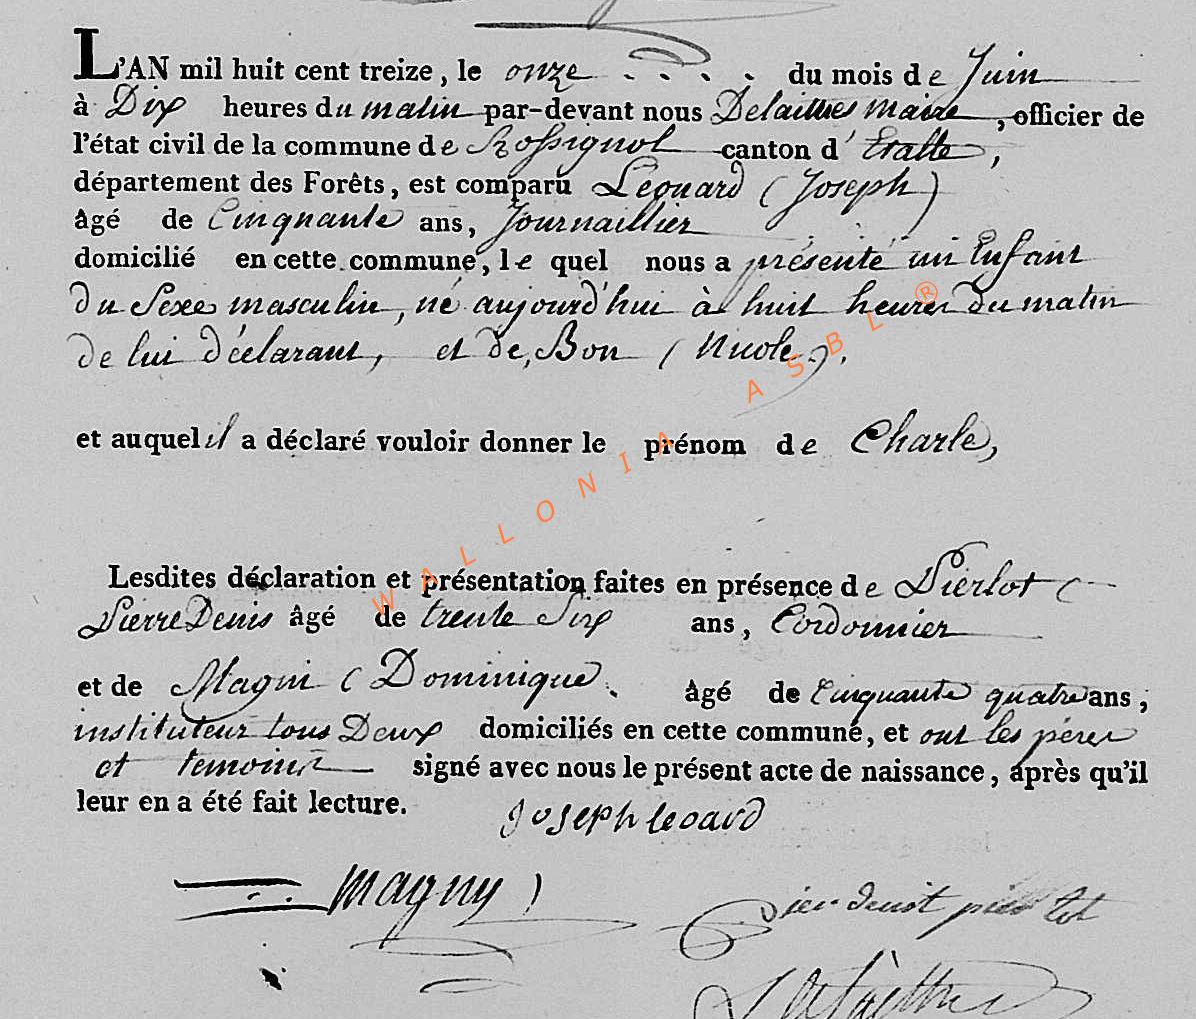 L'AN mil huit cent treize, le onze . . . . du mois de Juin
à Dix heures du matin par-devant nous maire, officier de
l'état civil de la commune de Rossignol canton d'Etalle,
département des Forêts, est comparu Léonard (Joseph)
âgé de Cinquante ans, Journaillier
domicilié en cette commune, le quel nous a présenté un Enfant
du Sexe masculin, né aujourd'hui à huit heures du matin
de lui déclarant, et de, Bon (Nicole).
et auquel il a déclaré vouloir donner le prénom de Charle,
Lesdites déclaration et présentation faites en présence de Pierlot (
Pierre Denis âgé de trente Six ans, Cordonnier
et de Magni (Dominique. âgé de Cinquante quatre ans,
instituteur tous Deux domiciliés en cette commune, et ont les pères
et temoins signé avec nous le présent acte de naissance, après qu'il
leur en a été fait lecture.
Joseph leoard
magny
WALLONIA ASBL ®